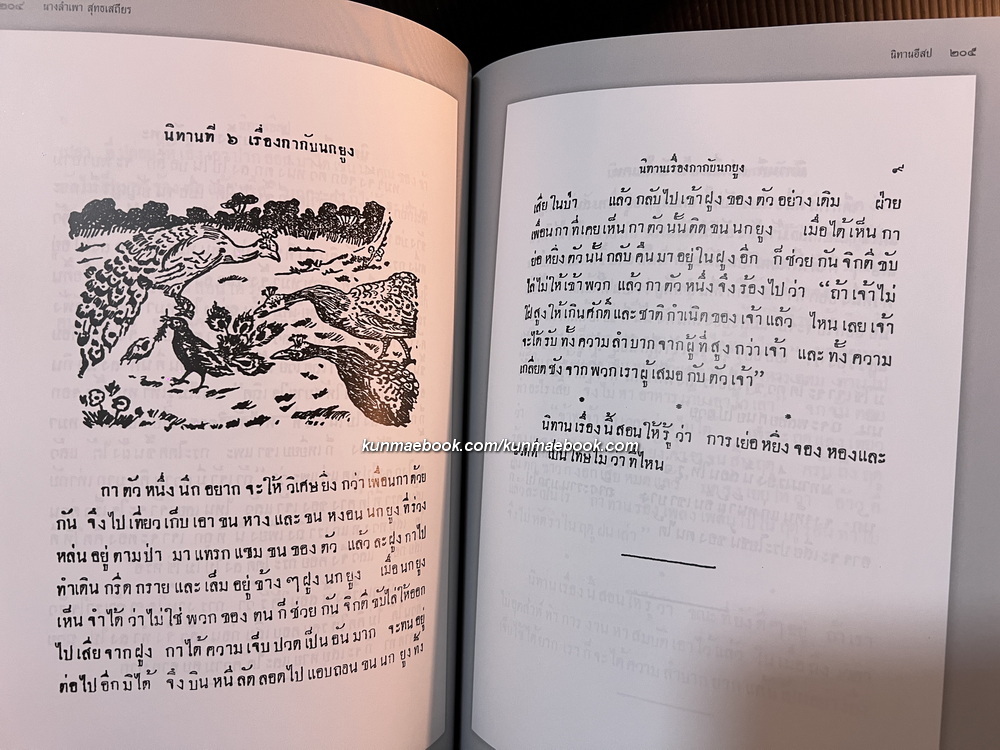 ๒๐๔ นางลำเพา สุทธเสถียร
นิทานที่ ๖ เรื่องกากับนกยูง
กาตัวหนึ่งนึกอยากจะให้วิเศษยิ่งกว่าเพื่อนกาด้วย
กัน จึงไปเที่ยวเก็บเอาขนหางและขนหงอนนกยูงที่ร่วง
หล่นอยู่ตามป่า มาแทรกแซมขนของตัว แล้วละฝูงกาไป
ทำเดินกรีดกรายและเล็มอยู่ข้าง ๆ ฝูงนกยูง เมื่อนกยูง
เห็นจำได้ว่าไม่ใช่พวกของตนก็ช่วยกันจิกตีขับไล่ให้ออก
ไปเสียจากฝูง กาได้ความเจ็บปวดเป็นอันมาก จะทนอยู่
ต่อไปอีกมิได้ จึงบินหนีลัดลอดไปแอบถอนขนนกยูงทิ้ง
นิทานอีสป ๒๐๕
นิทานเรื่องกากับนกยูง ๙
เสียในป่า แล้วกลับไปเข้าฝูงของตัวอย่างเดิม ฝ่าย
เพื่อนกาที่เคยเห็นกาตัวนั้นติดขนนกยูง เมื่อได้เห็นกา
ย่อหยิ่งตัวนั้นกลับคืนมาอยู่ในฝูงอีก ก็ช่วยกันจิกตีขับ
ไล่ไม่ให้เข้าพวก แล้วกาตัวหนึ่งจึงร้องไปว่า “ถ้าเจ้าไม่
ใฝ่สูงให้เกินศักดิ์และชาติกำเนิดของเจ้าแล้ว ไหนเลยเจ้า
จะได้รับทั้งความลำบากจากผู้ที่สูงกว่าเจ้า และทั้งความ
เกลียดชังจากพวกเราผู้เสมอกับตัวเจ้า”
นิทานเรื่องนี้สอนให้รู้ว่า การเย่อหยิ่งจองหองและ
เป็นโทษไม่ว่าที่ไหน
kunmaebook.com/kunmaebook.com